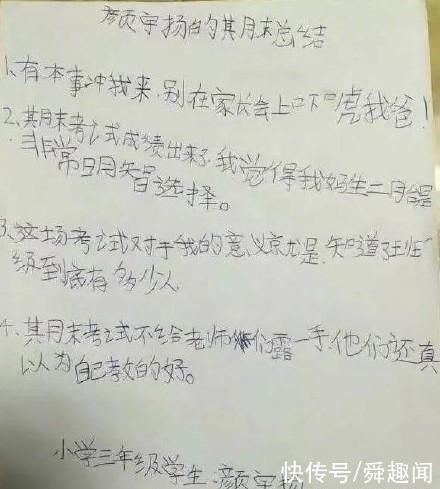 颜宇扬的期末总结
1、有本事冲我来,别在家长会上吓唬我爸!
2、期末考试成绩出来了,我觉得我妈生二胎是
非常明智选择。
3、这场考试对于我的意义京尤是,知道了班
级到底有多少人
4、期末考试不给老师们露一手,他们还真
以为自己教的好。
小学三年级学生:颜宇扬
快传号/舜趣闻